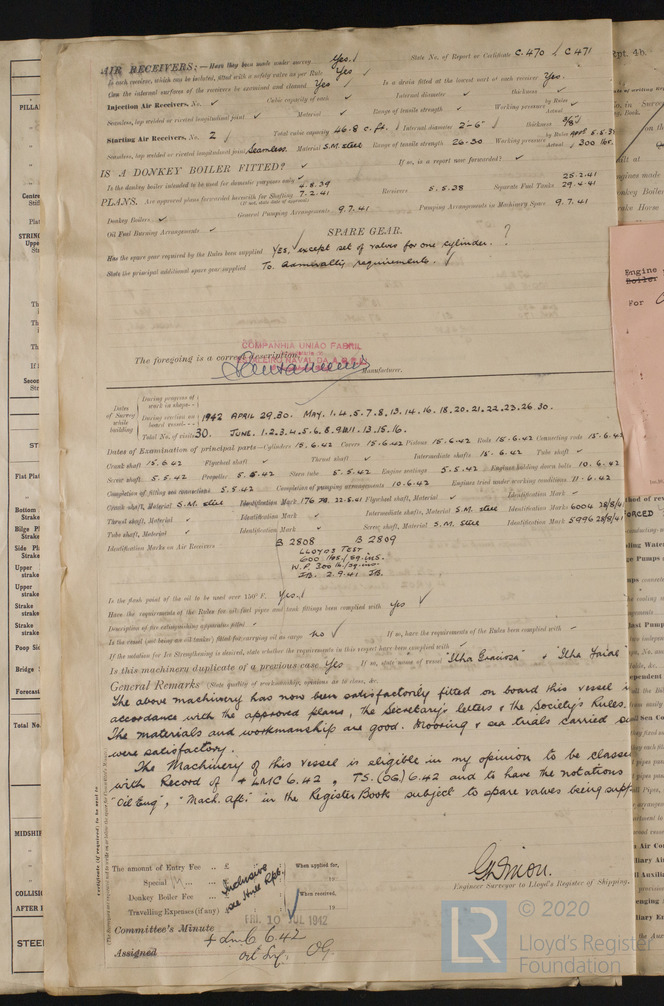 AIR RECEIVERS:— Have they been made under survey Yes. State No. of Report or Certificate C.470 & C 471
Is each receiver, which can be isolated, fitted with a safety valve as per Rule Yes
Can the internal surfaces of the receivers be examined and cleaned Yes Is a drain fitted at the lowest part of each receiver Yes.
Injection Air Receivers, No. ✓ Cubic capacity of each ✓ Internal diameter ✓ thickness ✓
Seamless, lap welded or riveted longitudinal joint ✓ Material ✓ Range of tensile strength ✓ Working pressure by Rules Actual
Starting Air Receivers, No. 2 Total cubic capacity 46.8 c.ft. Internal diameter 2'-6" thickness
Seamless, lap welded or riveted longitudinal joint Seamless. Material S.M. steel Range of tensile strength 26-30 Working pressure by Rules Actual 300 lbs.
IS A DONKEY BOILER FITTED? ✓ If so, is a report now forwarded? ✓
Is the donkey boiler intended to be used for domestic purposes only ✓
PLANS. Are approved plans forwarded herewith for Shafting 4.8.39 7.2.41 Receivers 5.5.38 Separate Fuel Tanks 25.2.41 29.4.41
Donkey Boilers ✓ General Pumping Arrangements 9.7.41 Pumping Arrangements in Machinery Space 9.7.41
Oil Fuel Burning Arrangements ✓
SPARE GEAR.
Has the spare gear required by the Rules been supplied Yes, except set of valves for one cylinder. ?
State the principal additional spare gear supplied To Admiralty requirements.
COMPANHIA UNIÃO FABRIL
The foregoing is a correct description,
Manufacturer.
Dates of Survey while building
During progress of work in shops - -
During erection on board vessel - - 1942 APRIL 29.30. MAY. 1.4.5.7.8.13.14.16.18.20.21.22.23.26.30.
Total No. of visits 30. JUNE. 1.2.3.4.5.6.8.9.10.11.13.15.16.
Dates of Examination of principal parts—Cylinders 15.6.42 Covers 15.6.42 Pistons 15.6.42 Rods 15.6.42 Connecting rods 15.6.42
Crank shaft 15.6.42 Flywheel shaft ✓ Thrust shaft ✓ Intermediate shafts 15.6.42 Tube shaft ✓
Screw shaft 5.5.42 Propeller 5.5.42 Stern tube 5.5.42 Engine seatings 5.5.42 Engines holding down bolts 10.6.42
Completion of fitting sea connections 5.5.42 Completion of pumping arrangements 10.6.42 Engines tried under working conditions 11.6.42
Crank shaft, Material S.M. steel Identification Mark 176 22.5.41 Flywheel shaft, Material ✓ Identification Mark ✓
Thrust shaft, Material ✓ Identification Mark ✓ Intermediate shafts, Material S.M. steel Identification Marks 6006 28/8/41
Tube shaft, Material ✓ Identification Mark ✓ Screw shaft, Material S.M. steel Identification Mark 5996 28/8/41
Identification Marks on Air Receivers B 2808 B 2809
LLOYDS TEST
600 lbs./sq.ins.
W.P. 300 lb./sq.ins.
J.B. 2.9.41 J.B.
Is the flash point of the oil to be used over 150° F. Yes.
Have the requirements of the Rules for oil fuel pipes and tank fittings been complied with Yes
Description of fire extinguishing apparatus fitted ✓
Is the vessel (not being an oil tanker) fitted for carrying oil as cargo no If so, have the requirements of the Rules been complied with ✓
If the notation for Ice Strengthening is desired, state whether the requirements in this respect have been complied with ✓
Is this machinery duplicate of a previous case Yes If so, state name of vessel "Ilha Graciosa" & "Ilha Faial"
General Remarks (State quality of workmanship, opinions as to class, &c.
The above machinery has now been satisfactorily fitted on board this vessel
accordance with the approved plans, the Secretary's letters & the Society's Rules.
The materials and workmanship are good. Mooring & sea trials carried
were satisfactory.
The Machinery of this vessel is eligible in my opinion to be classe
with Record of + LMC 6.42, TS.(OG) 6.42 and to have the notations
"Oil Eng", "Mach. Aft." in the Register Book subject to spare valves being supp
The amount of Entry Fee .. £
Special ... ...
Donkey Boiler Fee ...
Travelling Expenses (if any)
Inclusive see Hull Rpt.
When applied for,
When received,
G. Dixon.
Engineer Surveyor to Lloyd's Register of Shipping.
FRI. 10 JUL 1942
Committee's Minute
Assigned
+ LMC 6.42
Oil Eng. OG.
Rpt. 4b.
Engine
Boiler
For
LR
© 2020
Lloyd's Register
Foundation